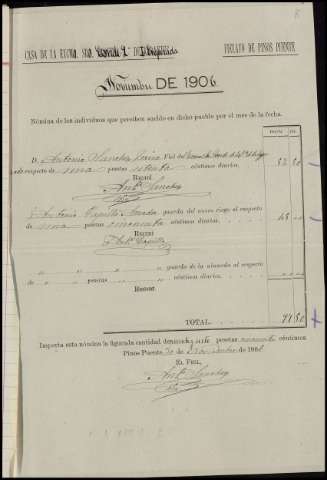 CASA DE LA EXCMA. SRA. Condª Vª DE
PELAYO DE PINOS PUENTE
Noviembre DE 1906
Nómina de los individuos que perciben sueldo en dicho pueblo por el mes de la fecha.
D. Antonio Sanchez
al respecto de una pesetas setenta céntimos diarios.
Recibí
Antº Sanchez
Antonio Capilla guarda del nuevo riego al respecto
de una pesetas cincuenta céntimos diarios. 45
Recibí
Antº Capilla
" " " " guarda de la alameda al respecto
de " " pesetas " " céntimos diarios.
Recibí
TOTAL. 50
Importa esta nómina la figurada cantidad de noventa y siete pesetas cincuenta céntimos
Pinos Puente 30 de Noviembre de 1906
EL FIEL,
Antº Sanchez